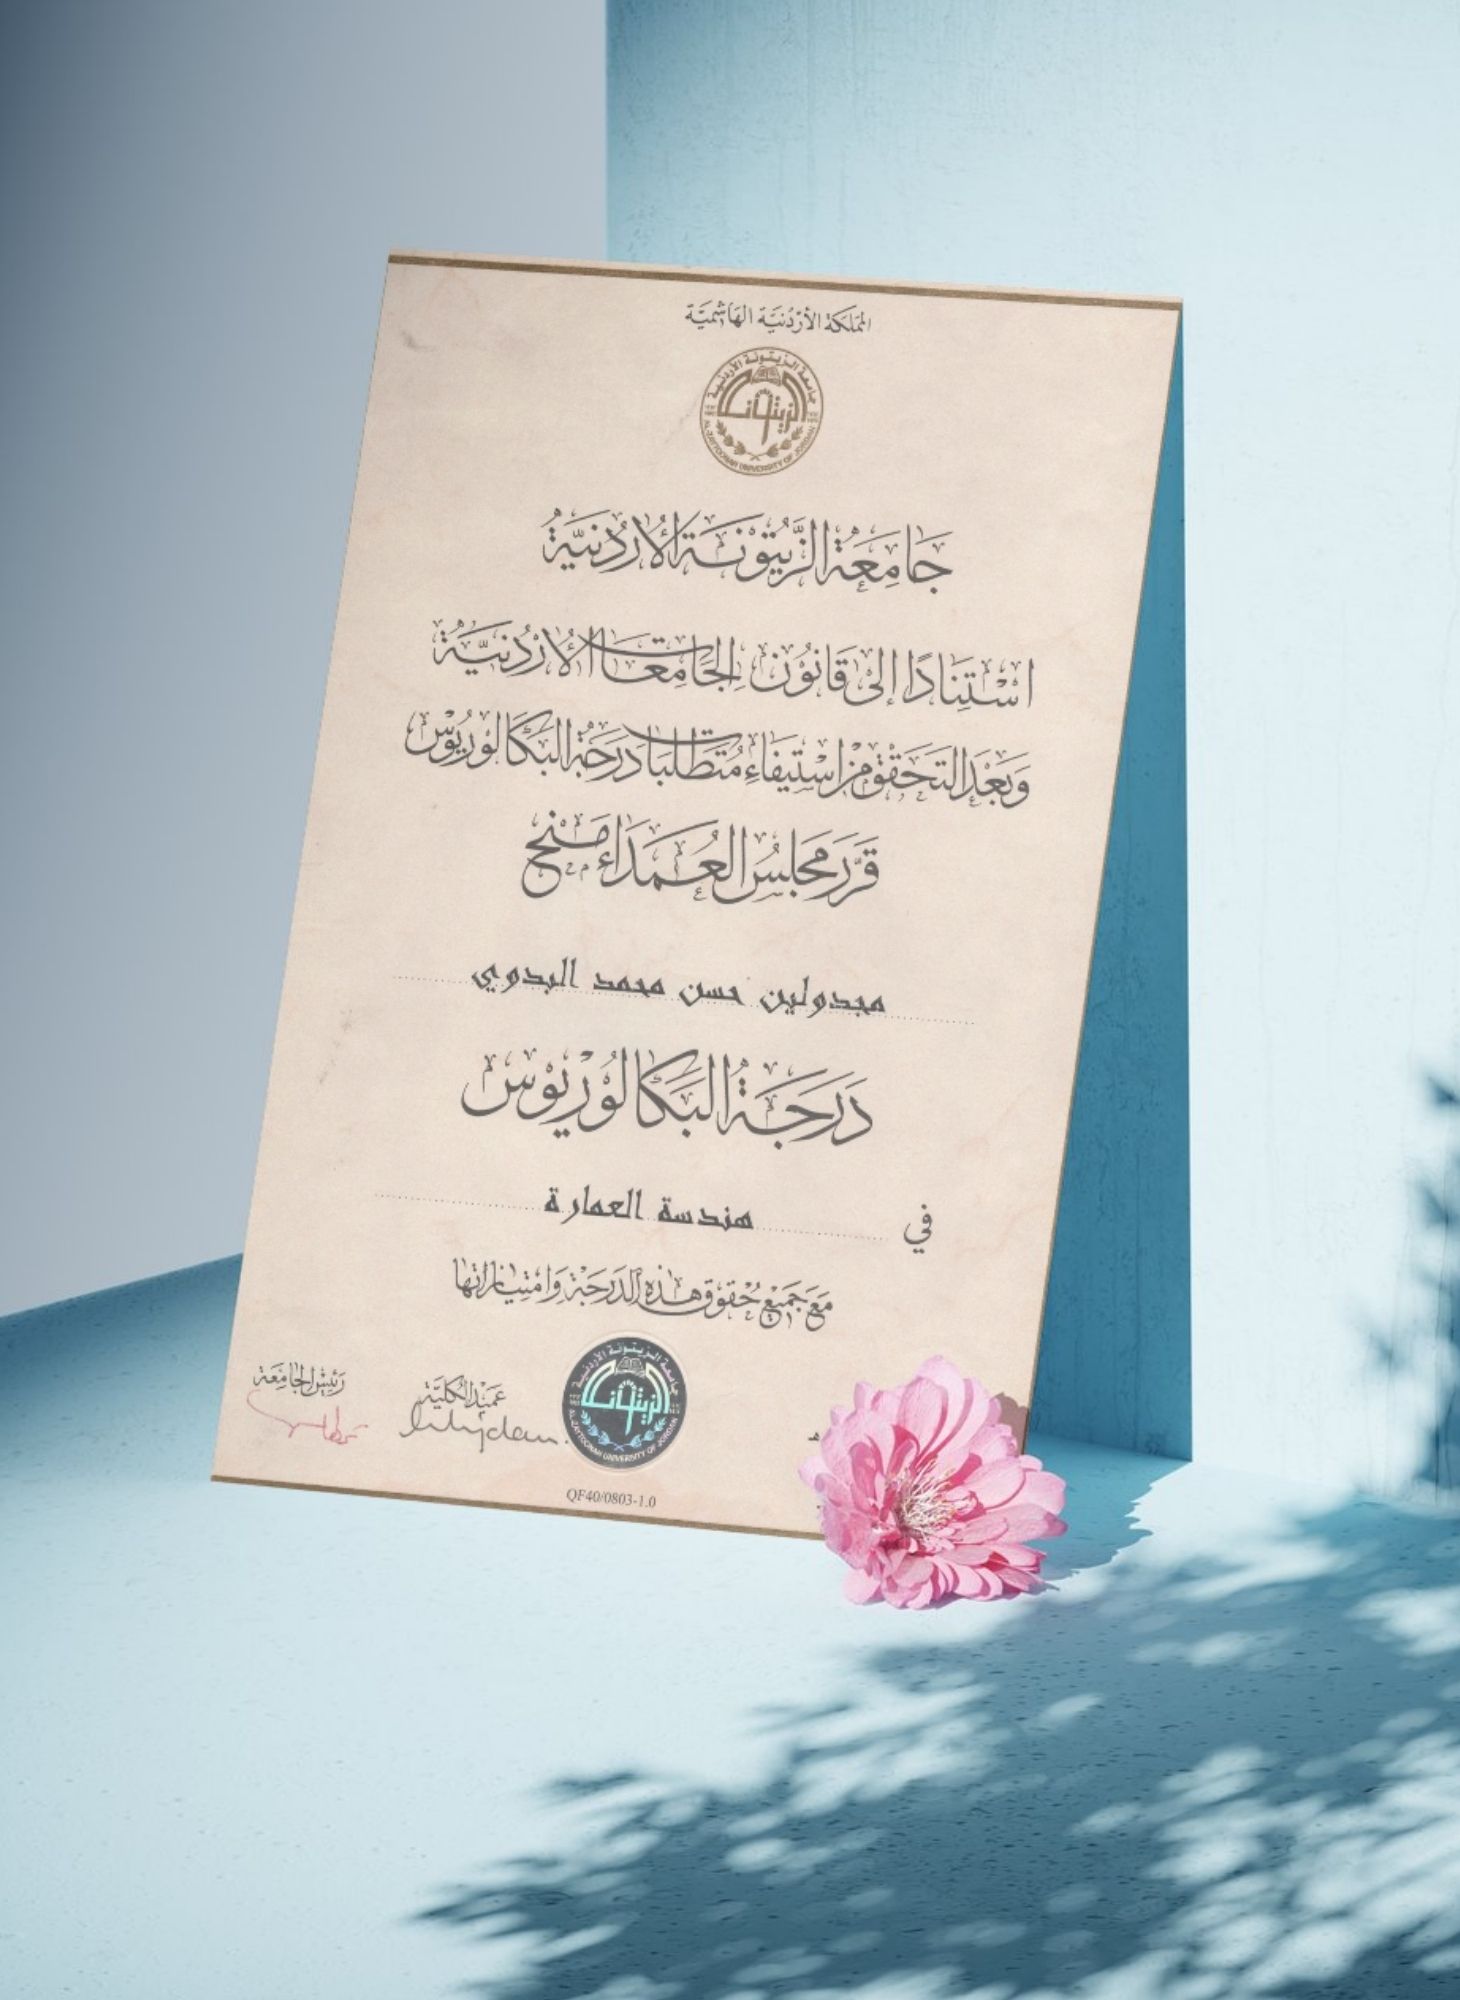 المملكة الأردنية الهاشمية
جامعة الزيتونة الأردنية
AL-ZAYTOONAH UNIVERSITY OF JORDAN
الزيتونة
جَامِعَةُ الزَّيْتُوْنَةِ الأُرْدُنِيَّةُ
اسْتِنَادًا إلى قَانُوْن الجَامِعَات الأُرْدُنيَّةُ
وَبَعْدَ التَحَقُقْ مْن اسْتِيفَاءِ مُتَطَلبَات دَرَجَة البَكَالوُريُوْس
قَرَّرَ مَجلسُ العُمَدَاء مَنْح
مجدولين حسن محمد البدوي
دَرَجَةُ البَكَالوُرْيُوْس
في هندسة العمارة
مَعَ جَميْع حُقوْق هَذِه الدَرَجَة وَامْتِيَازَاتهَا
رَئيْس الجَامِعَة
عَمِيْد الكُليَّة
جامعة الزيتونة الأردنية
AL-ZAYTOONAH UNIVERSITY OF JORDAN
الزيتونة
QF40/0803-1.0